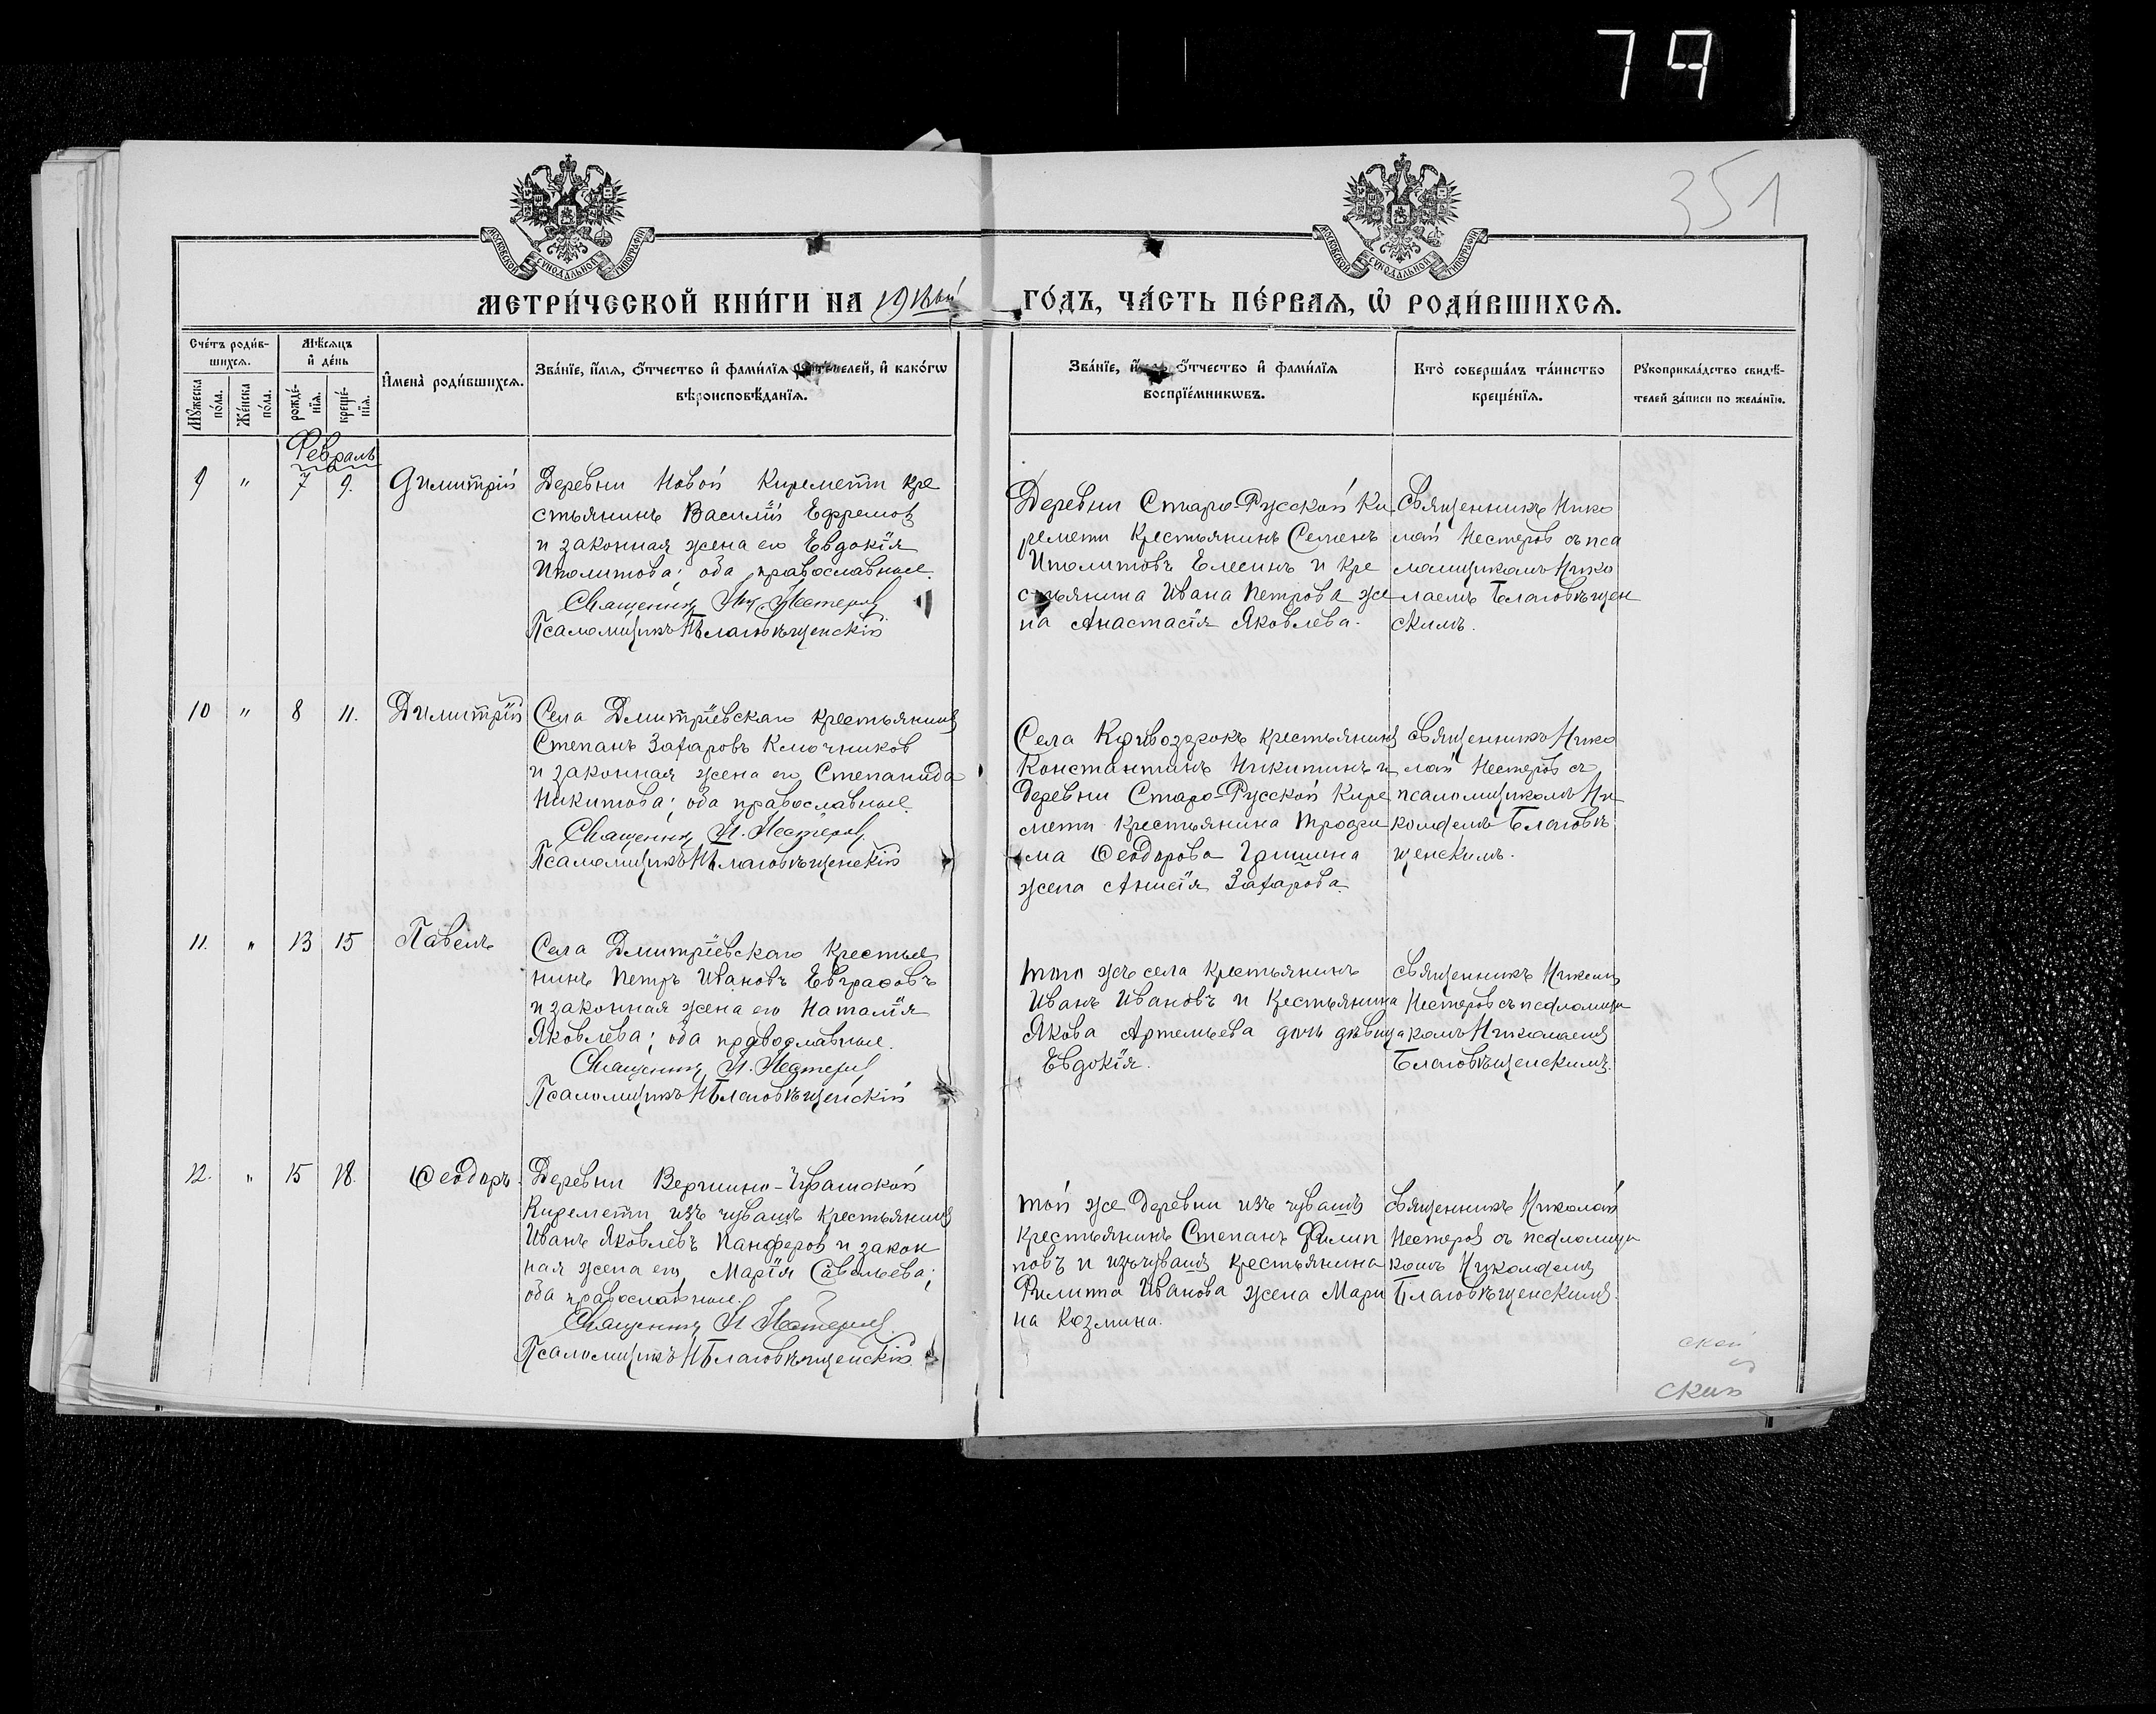 79
351
МОСКОВСКОЙ СѴНОДАЛЬНОЙ ТИПОГРАФІИ
МОСКОВСКОЙ СѴНОДАЛЬНОЙ ТИПОГРАФІИ
МЕТРИ́ЧЕСКОЙ КНИ́ГИ НА ГО́ДЪ, ЧА́СТЬ ПЕ́РВАѦ, Ѡ҆ РОДИ́ВШИХСѦ.
Сче́тъ роди́в-
шихсѧ.
Мꙋ́жеска по́ла.
Же́нска по́ла.
Мѣ́сѧцъ
и҆ де́нь
рожде́-
нїѧ.
креще́-
нїѧ.
И҆мена̀ роди́вшихсѧ.
Зва́нїе, и҆́мѧ, ѻ҆́тчество и҆ фами́лїѧ роди́телей, и҆ како́гѡ
вѣроисповѣ́данїѧ.
Зва́нїе, и҆́мѧ, ѻ҆́тчество и҆ фами́лїѧ
воспрїе́мникѡвъ.
Кто̀ соверша́лъ та́инство
креще́нїѧ.
Рꙋкоприкла́дство свидѣ́-
телей за́писи по жела́нїю.
Февраль
9 " 7 9. Димитрій
Деревни Новой Киремети кре
стьянинъ Василій Ефремов
и законная жена его Евдокія
Иполитова; оба православные.
Священник Ник. Нестеров
Псаломщикъ Н Благовѣщенскій
Деревни Старо-Русской Ки
ремети крестьянинъ Семенъ
Иполитовъ Елесинъ и кре
стьянина Ивана Петрова же
на Анастасія Яковлева.
Священникъ Нико
лай Нестеров съ пса
ломщикомъ Нико
лаемъ Благовѣщен
скимъ.
10 " 8 11. Димитрій
Села Дмитріевскаго крестьянин
Степанъ Захаровъ Ключников
и законная жена его Степанида
Никитова; оба православные
Священник Н. Нестеров
Псаломщикъ Н Благовѣщенскій
Села Кривозерокъ крестьянин
Константинъ Никитинъ и
деревни Старо-Русской Кире
мети крестьянина Трофи
ма Ѳеодорова Гришина
жена Анисія Захарова.
Священникъ Нико
лай Нестеров съ
псаломщикомъ Ни
колаемъ Благовѣ
щенскимъ.
11. " 13 15 Павелъ
Села Дмитріевскаго крестья
нинъ Петръ Ивановъ Евграфовъ
и законная жена его Наталія
Яковлева; оба православные.
Священник Н. Нестеров
Псаломщикъ Н Благовѣщенскій
того же села крестьянинъ
Иванъ Ивановъ и крестьянина
Якова Артемьева дочь дѣвица
Евдокія.
Священникъ Николай
Нестеров съ псаломщи
комъ Николаем
Благовѣщенскимъ.
12. " 15 18. Ѳеодоръ.
Деревни Вершино-Чувашской
Киремети изъ чувашъ крестьянин
Иванъ Яковлевъ Панферов и закон
ная жена его Марія Савельева;
оба православные.
Священник Н Нестеров
Псаломщикъ Н Благовѣщенскій
той же деревни изъ чувашъ
крестьянинъ Степанъ Филип
повъ и изъ чувашъ крестьянина
Филипа Иванова жена Мари
на Козмина.
Священникъ Николай
Нестеров съ псаломщи
комъ Николаем
Благовѣщенским.
ской
скій